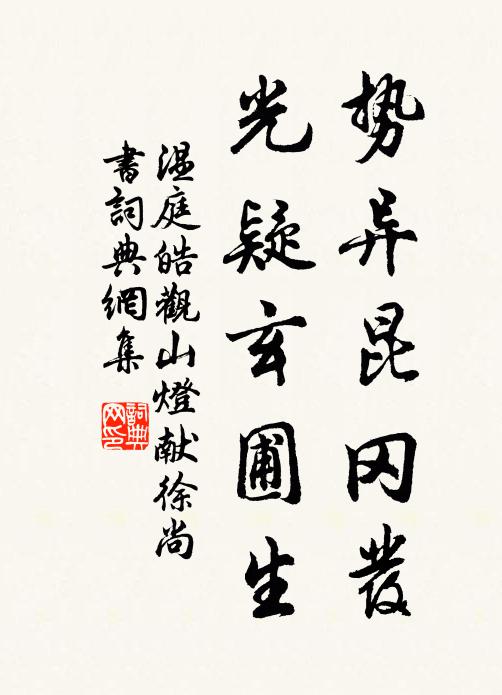 势异昆冈發
光疑玄圃生
温庭皓觀山燈献徐尚
書詞典網集
詞典
网印